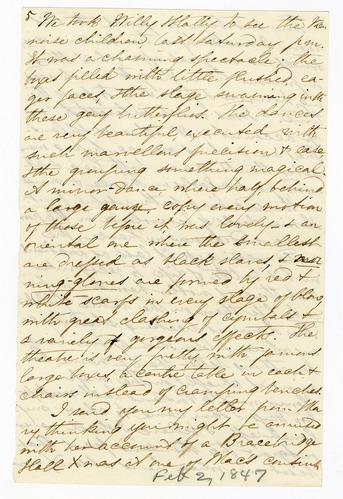 5 We took Willy & Latty to see the Vien
noise children last Saturday p.m.
It was a charming spectacle. The
was filled with little flushed, ea-
ger faces, & the stage swarming with
these gay butterflies. The dances
are very beautiful executed with
such marvellous precision & ease
& the grouping something magical.
A mirror-dance, where half behind
a large gauze, copy every motion
of those before it, was lovely - & an
oriental one where the smallest
are dressed as black slaves, & mor
ning-glories are formed by red &
white scarfs in every stage of blow
with great clashing of cymbals &
a variety & gorgeous effect. The
theatre is very pretty with famous
large boxes, a centre table in each &
chairs instead of cramping benches.
I send you my letter from Ma
ry thinking you might be amused
with her account of a Bracebridge
Hall Xmas at one of Mac's
Feb 2, 1847